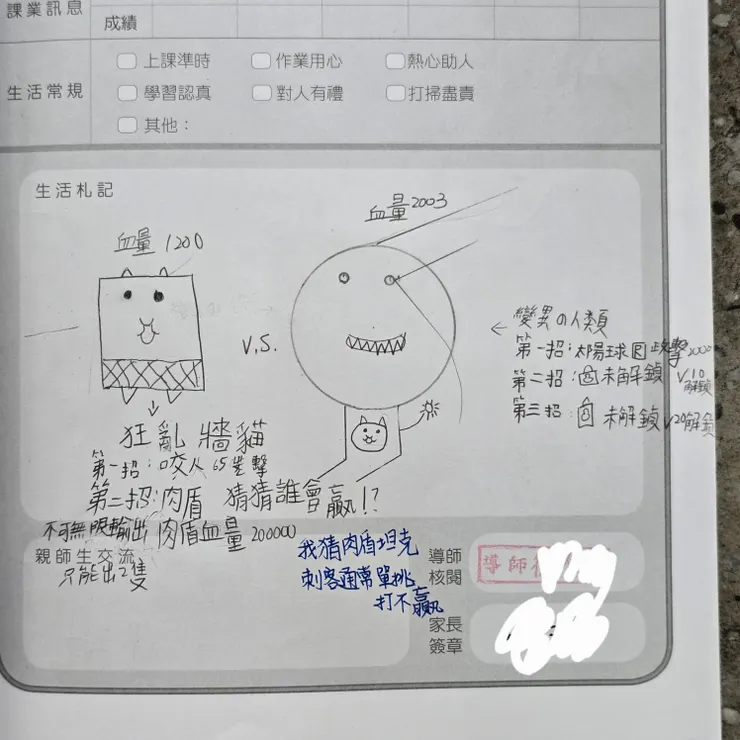 課業訊息
成績
生活常規
上課準時
作業用心
熱心助人
學習認真
對人有禮
打掃盡責
其他：
生活札記
血量 1200
血量 2003
V.S.
← 變異の人類
第一招：太陽球
第二招：未解鎖 V10解鎖
第三招：未解鎖 V20解鎖
狂亂牆貓
第一招：咬人
第二招：肉盾
猜猜誰會贏!?
不可無限輸出 肉盾血量200000
只能出2隻
親師生交流
我猜肉盾坦克
刺客通常單挑
打不贏
導師核閱
導師
家長簽章